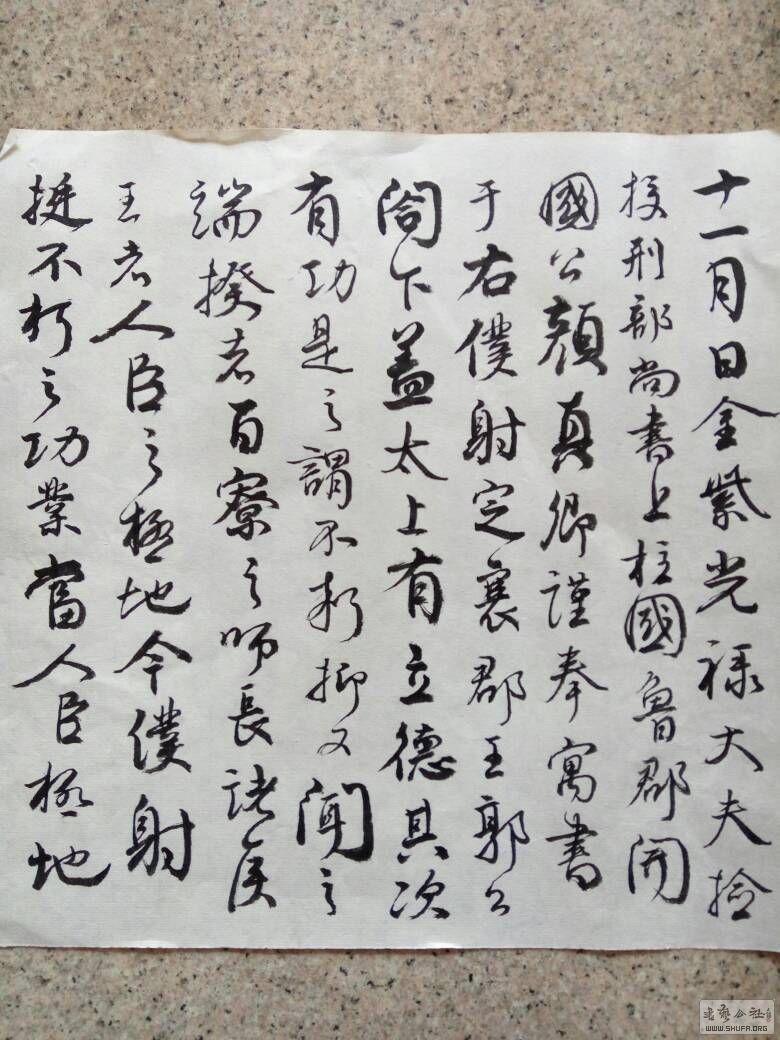 十一月日金紫光禄大夫捡
挍刑部尚書上柱國魯郡開
國公顔真卿謹奉寓書
于右僕射定襄郡王郭公
閤下盖太上有立德其次
有功是之謂不朽抑又聞之
端揆者百寮之師長諸侯
王者人臣之極地今僕射
挺不朽之功業當人臣極地
書藝公社
WWW.SHUFA.ORG